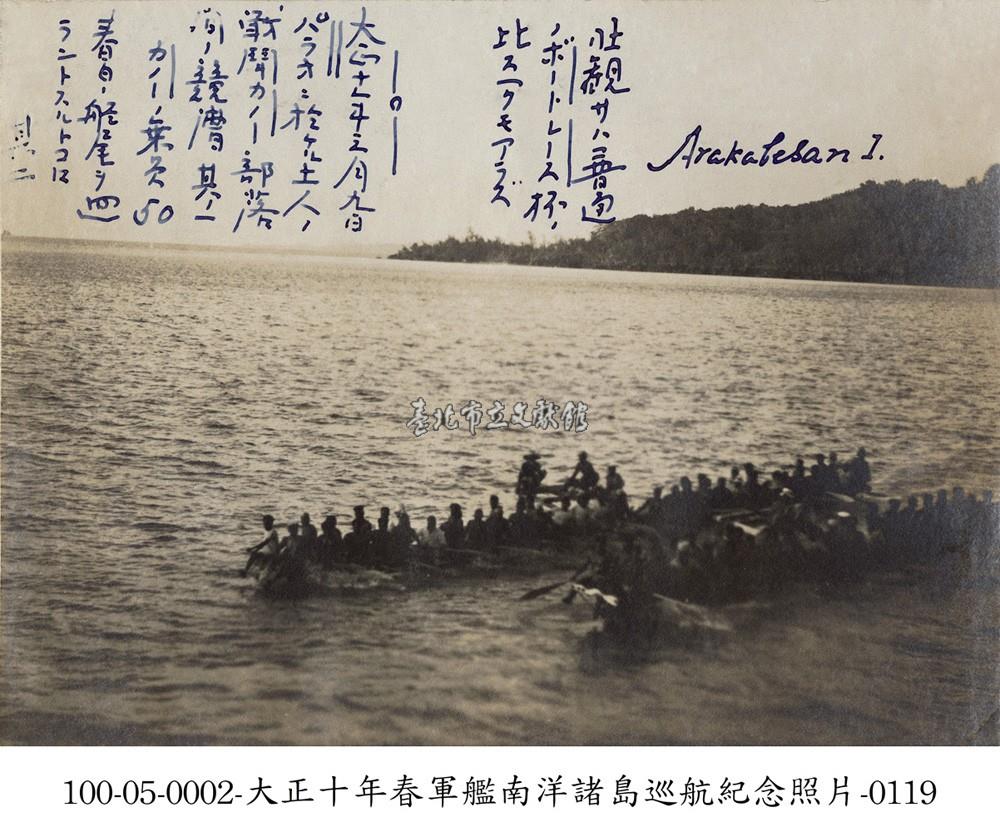 Arakabesan I.
壮観サハ普通
ノボートレース杯ノ
比スヘクモアラズ
大正十年三月九日
パラオニ於ケル土人ノ
戦闘カノー部落
間ノ競漕 其ノ一
カノーノ乗員50
春日ノ艦尾ヲ廻
ラントスルトコロ
其二
臺北市立文獻館
100-05-0002-大正十年春軍艦南洋諸島巡航紀念照片-0119